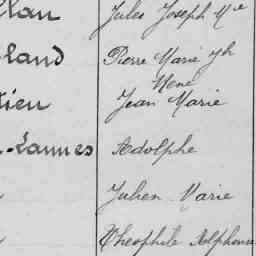 Jules Joseph Mie
land Pierre Marie Jh
René
tien Jean Marie
Lannes Adolphe
Julien Marie
Théophile Alphonse